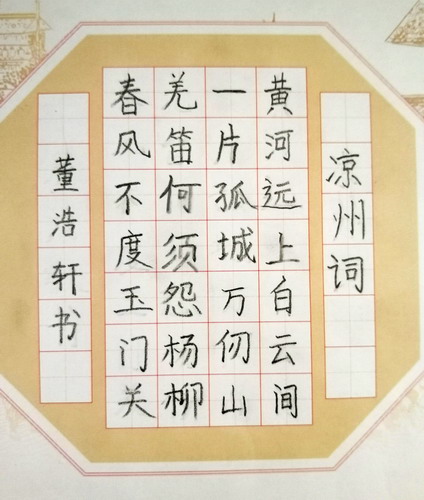 凉州词
黄河远上白云间
一片孤城万仞山
羌笛何须怨杨柳
春风不度玉门关
董浩轩书